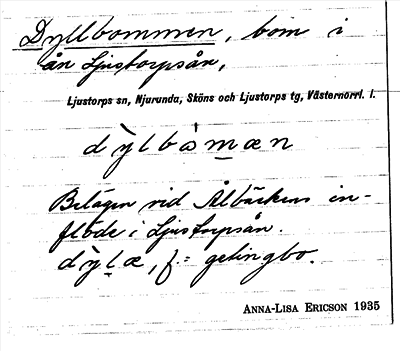 Dyllbommen, bom i
ån Ljustorpsån,
Ljustorps sn, Njurunda, Sköns och Ljustorps tg, Västernorrl. l.
dỳlbòmæn
Belägen vid Ålbäckens in-
flöde i Ljustorpsån.
dỳlæ, f. = getingbo.
ANNA-LISA ERICSON 1935